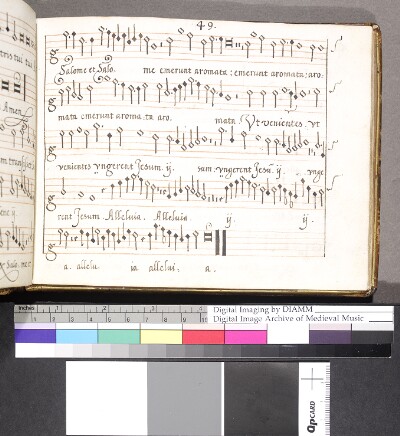 49.
Salome et Salo. me emerunt aromata: emerunt aromata: aro.
mata emerunt aroma.ta aro. mata Vt venientes .vt
venientes vngerent Jesum. ij. sum. vngerent Jesū. ij. vnge
rent Jesum. Alleluia. Alleluia ij. ij.
a. allelu ia allelui: a.
Amen
Inches
Digital Imaging by DIAMM
Digital Image Archive of Medieval Music
QPCARD